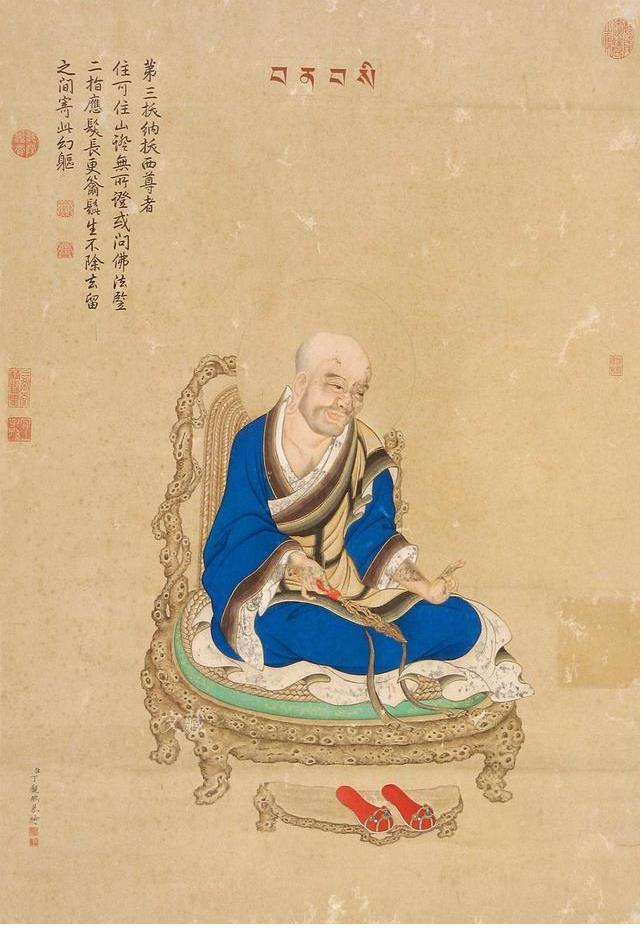 བ ན བ སི
第三拔納拔西尊者
住可住山證無所證或問佛法豎
二指應髮長更翦鬚生不除去留
之間寄此幻軀
臣丁觀鵬恭繪